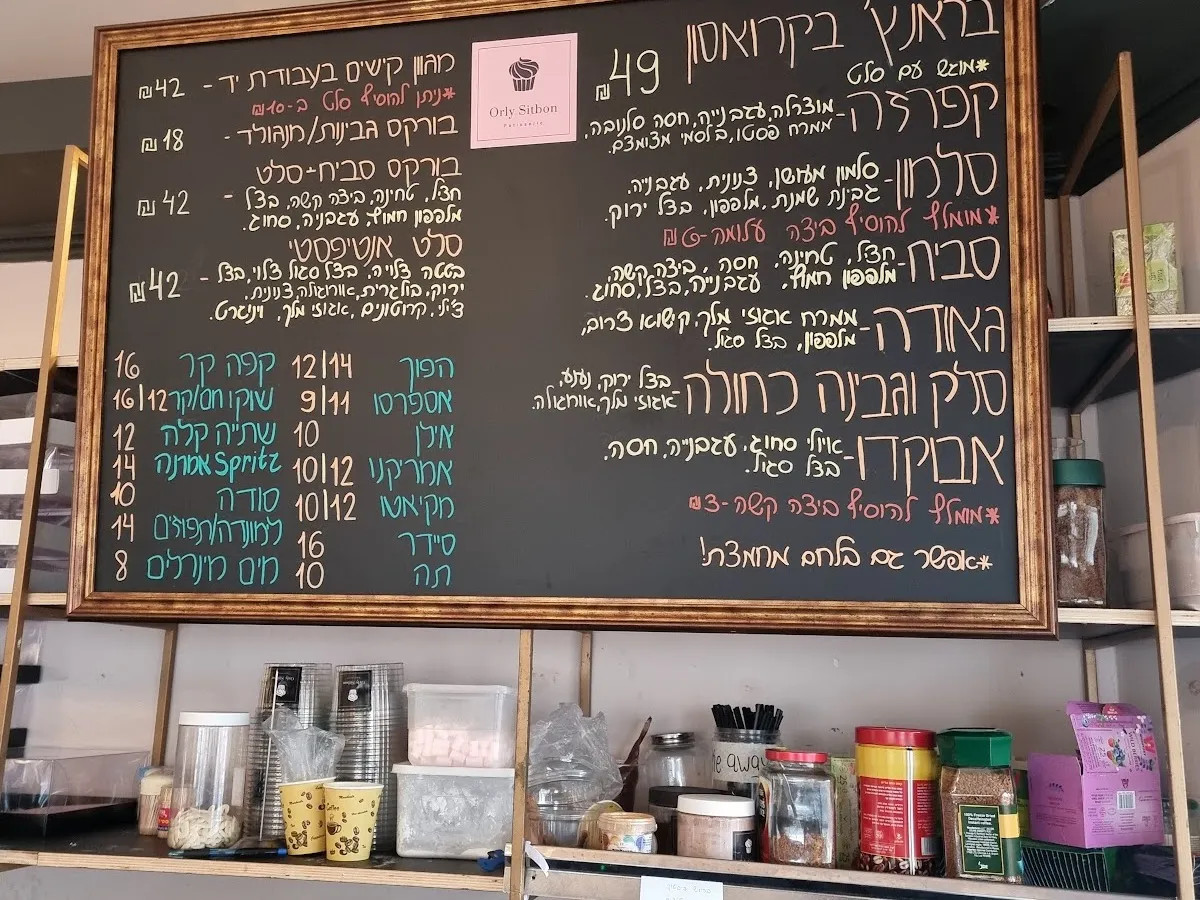 בראנץ' בקרואסון 49 ₪
*מוגש עם סלט
קפרזה - מוצרלה, עגבנייה, חסה סלנובה,
ממרח פסטו, בלסמי מצומצם.
סלמון - סלמון מעושן, צנונית, עגבנייה.
גבינת שמנת, מלפפון, בצל ירוק.
*מומלץ להוסיף ביצה עלומה -6 ₪
סביח - חציל, טחינה, חסה, ביצה קשה,
מלפפון חמוץ, עגבנייה, בצל, סחוג.
גאודה - ממרח אגוזי מלך, קישוא צרוב,
מלפפון, בצל סגול.
סלק וגבינה כחולה - בצל ירוק, נענע,
אגוזי מלך, אורוגולה.
אבוקדו - איולי סחוג, עגבנייה, חסה.
בצל סגול.
*מומלץ להוסיף ביצה קשה -3 ₪
*אפשר גם בלחם מחמצת!
Orly Sitbon
Patisserie
מגוון קישים בעבודת יד - 42 ₪
*ניתן להוסיף סלט ב-10 ₪
בורקס גבינות/מנגולד - 18 ₪
בורקס סביח+סלט
חציל, טחינה, ביצה קשה, בצל - 42 ₪
מלפפון חמוץ, עגבניה, סחוג.
סלט אנטיפסטי
בטטה צלויה, בצל סגול צלוי, בצל - 42 ₪
ירוק, בולגרית, אורוגולה, צנונית,
צ'ילי, קרוטונים, אגוזי מלך, וינגרט.
הפוך 12|14
אספרסו 9|11
אילן 10
אמריקנו 10|12
מקיאטו 10|12
סיידר 16
תה 10
קפה קר 16
שוקו חם/קר 16|12
שתייה קלה 12
Spritz אמרנה 14
סודה 10
לימונדה/תפוזים 14
מים מינרלים 8
Coffee